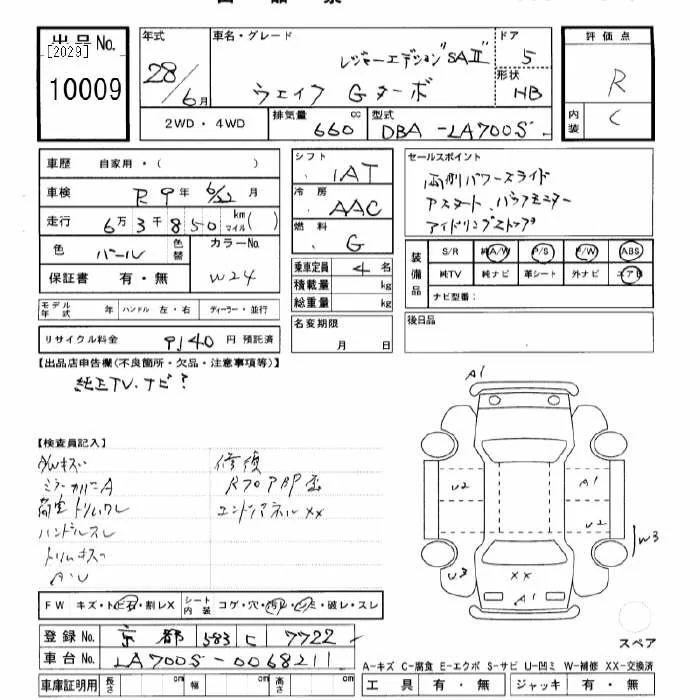 出品票
出品 No.
[2029]
10009
年式
28/6月
車名・グレード
レジャーエディション"SAⅡ"
ウェイク Gターボ
ドア
5
形状
HB
評価点
R
内装
C
2WD・4WD
排気量
660 cc
型式
DBA-LA700S
車歴 自家用・( )
車検 R 9年 6/22月
走行 6万3千850 km マイル( )
色 パール 色替
カラーNo.
W24
保証書 有・無
シフト
IAT
冷房
AAC
燃料
G
乗車定員 4名
積載量 kg
総重量 kg
セールスポイント
両側パワースライド
アイドリングストップ
装備品
S/R 純A/W P/S P/W ABS
純TV 純ナビ 革シート 外ナビ エアB
ナビ型番:
モデル年式 年 ハンドル 左・右 ディーラー・並行
リサイクル料金 9140 円 預託済
名変期限
月 日
後日品
【出品店申告欄(不良箇所・欠品・注意事項等)】
純正TV.ナビ?
【検査員記入】
修復
ミラーカバーA
エンドパネルXX
ハンドルスレ
トリムキズ
A・U
A1
U2
A1
U2
W3
U3
XX
A1
スペア
FW キズ・トビ石・割レX
シート内装 コゲ・穴・汚レ・シミ・破レ・スレ
登録 No. 京都 583 に 7722
車台 No. LA700S-0068211
車庫証明用 長さ cm 幅 cm 高さ cm
A-キズ C-腐食 E-エクボ S-サビ U-凹ミ W-補修 XX-交換済
工具 有・無 ジャッキ 有・無